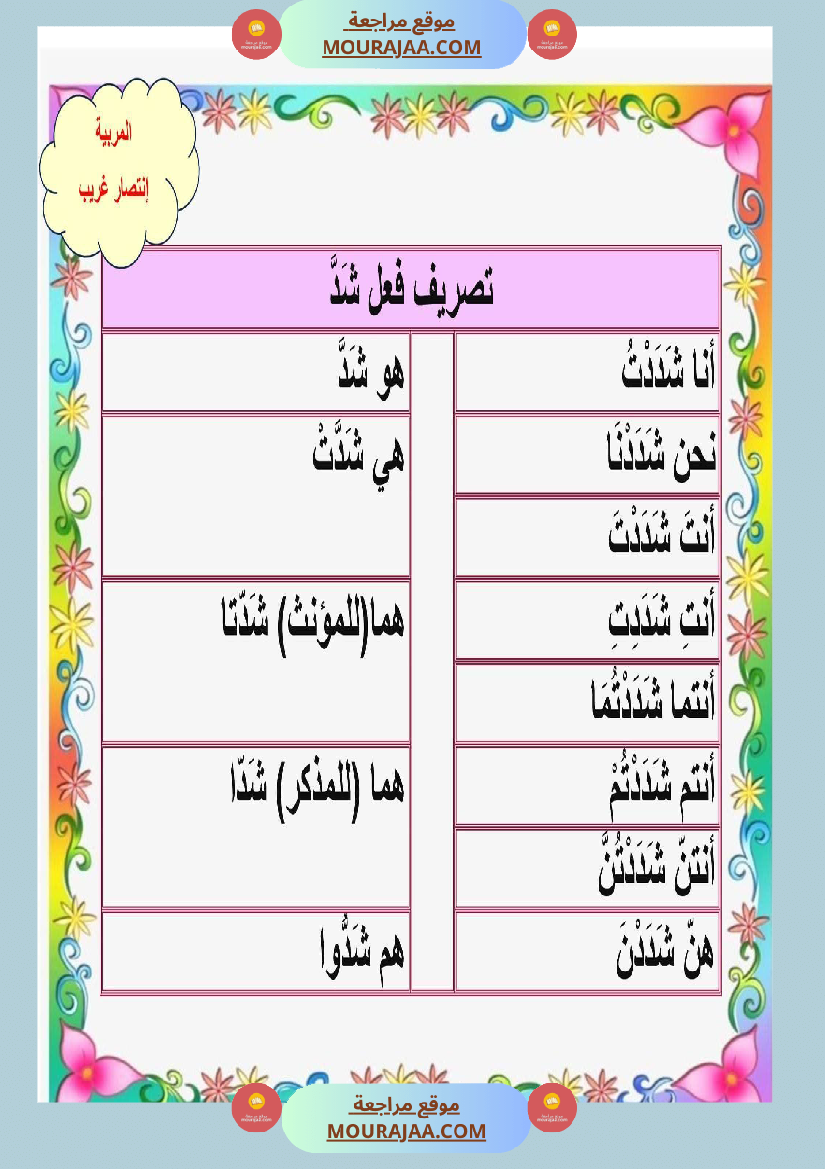 موقع مراجعة
MOURAJAA.COM
المربية
إنتصار غريب
تصريف فعل شَدَّ
أنا شَدَدْتُ
هو شَدَّ
نحن شَدَدْنَا
هي شَدَّتْ
أنتَ شَدَدْتَ
أنتِ شَدَدِتِ
هما(للمؤنث) شَدّتا
أنتما شَدَدْتُمَا
أنتم شَدَدْتُمْ
هما (للمذكر) شَدّا
أنتنّ شَدَدْتُنَّ
هنّ شَدَدْنَ
هم شَدُّوا
موقع مراجعة
MOURAJAA.COM